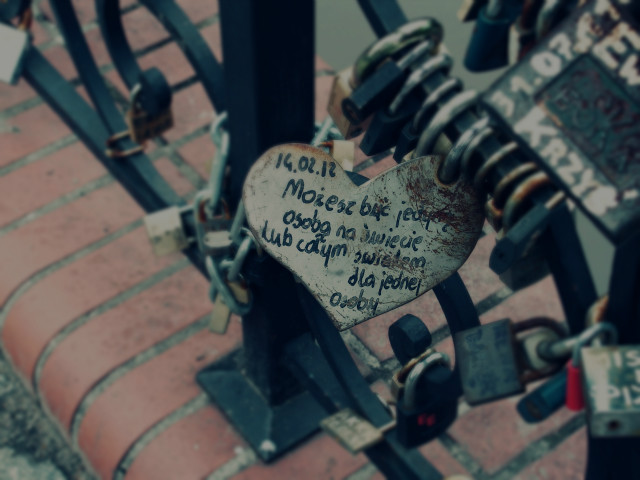 14.02.12
Możesz być jedyną
osobą na świecie
Lub całym światem
dla jednej
osoby
31.07.